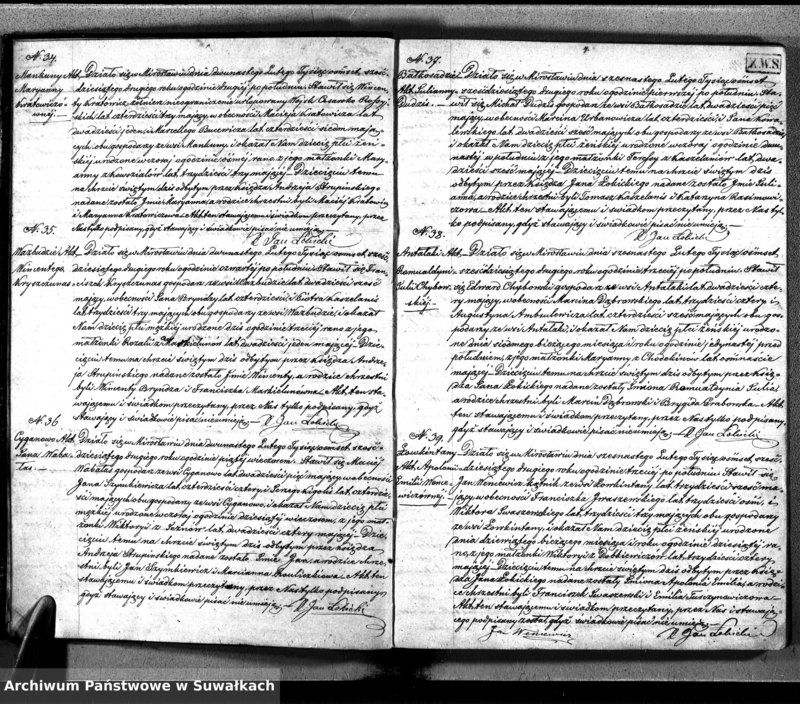 N. 34.
Mankuny Akt Działo się w Mirosławiu dnia dwunastego Lutego Tysiąc ośmset sześć
Maryanny dziesiątego drugiego roku o godzinie drugiej po południu. Stawił się Wincen
Kratowiczo ty Kratowicz, żołnierz nieograniczenie urlopowany Wojsk Cesarsko Rossyj
wnej skich lat czterdzieści trzy mający, w obecności Macieja Kratowicza lat
dwadzieścia jeden i Marcellego lat czterdzieści siedm mają
cych, obu gospodarzy ze wsi Mankuny i okazał Nam dziecię płci żeń
skiej urodzone wczoraj o godzinie ósmej rano z jego małżonki Mary
anny z lat trzydzieści trzy mającej. Dziecięciu temu
na chrzcie świętym dziś odbytym przez księdza Andrzeja Stupińskiego
nadane zostało Jmie Maryanna, a rodzice chrzestni byli Maciej Kratowicz
i Maryanna Kratowiczowa. Akt ten stawającemu i świadkom przeczytany, przez
Nas tylko podpisany, gdyż stawający i świadkowie pisać nie umieją.
X Jan Łobicki
N. 35.
Warbudzie Akt Działo się w Mirosławiu dnia dwunastego Lutego Tysiąc ośmset sześć
Wincentego dziesiątego drugiego roku o godzinie czwartej po południu. Stawił się Fran
Kryszczunas ciszek Kryszczunas gospodarz ze wsi Warbudzie lat dwadzieścia sześć
mający, w obecności Jana Bryndzy lat czterdzieści i Piotra Kaszelanis
lat trzydzieści trzy mających, obu gospodarzy ze wsi Warbudzie, i okazał
Nam dziecię płci męzkiej urodzone dziś o godzinie trzeciej rano z jego
małżonki Rozalii z lat dwadzieścia jeden mającej. Dzie
cięciu temu na chrzcie świętym dziś odbytym przez księdza Andrze
ja Stupińskiego nadane zostało Jmie Wincenty, a rodzice chrzestni
byli Wincenty Bryndza i Franciszka. Akt ten sta
wającemu i świadkom przeczytany, przez Nas tylko podpisany, gdyż
stawający i świadkowie pisać nie umieją. X Jan Łobicki
N. 36
Cyganowo Akt Działo się w Mirosławiu dnia dwunastego Lutego Tysiąc ośmset sześć
Jana Waba dziesiątego drugiego roku o godzinie piątej wieczorem. Stawił się Maciej
łas. Wabałas gospodarz ze wsi Cyganowo lat dwadzieścia pięć mający, w obecności
Jana Szymkiewicza lat czterdzieści cztery i Jerzego lat czterdzie
ści mających, obu gospodarzy ze wsi Cyganowo, i okazał Nam dziecię płci
męzkiej urodzone wczoraj o godzinie dziesiątej wieczorem, z jego mał
żonki Wiktoryi z lat dwadzieścia cztery mającej. Dzie
cięciu temu na chrzcie świętym dziś odbytym przez księdza
Andrzeja Stupińskiego nadane zostało Jmie Jan, a rodzice chrze
stni byli Jan Szymkiewicz i Marianna. Akt ten
stawającemu i świadkom przeczytany, przez Nas tylko podpisany
gdyż stawający i świadkowie pisać nie umieją. X Jan Łobicki
Z.W.S.
N. 37.
Bałkosadzie Działo się w Mirosławiu dnia szesnastego Lutego Tysiąc ośmset
Akt Julianny sześćdziesiątego drugiego roku o godzinie pierwszej po południu. Sta
Dudzis wił się Michał Dudzis gospodarz ze wsi Bałkosadzie lat dwadzieścia pięć
mający, w obecności Marcina Urbanowicza lat czterdzieści i Jana Kowa
lewskiego lat dwadzieścia sześć mających, obu gospodarzy ze wsi Bałkosadzie
i okazał Nam dziecię płci żeńskiej urodzone wczoraj o godzinie dwu
nastej w południe z jego małżonki Teresy z lat dwa
dzieścia sześć mającej. Dziecięciu temu na chrzcie świętym dziś
odbytym przez Księdza Jana Łobickiego nadane zostało Jmie Juli
anna, a rodzice chrzestni byli Tomasz Kaszelanis i Katarzyna
Akt ten stawającemu i świadkom przeczytany, przez Nas tyl
ko podpisany, gdyż stawający i świadkowie pisać nie umieją.
X Jan Łobicki
N. 38.
Antałaki Akt Działo się w Mirosławiu dnia szesnastego Lutego Tysiąc ośmset
Romualdyni sześćdziesiątego drugiego roku o godzinie trzeciej po południu. Stawił
Julii Chybow się Edward Chybowski gospodarz ze wsi Antałaki lat dwadzieścia czte
skiej ry mający, w obecności Marcina Dąbrowskiego lat trzydzieści cztery i
Augustyna Ambulewicza lat czterdzieści sześć mających obu gos
podarzy ze wsi Antałaki i okazał Nam dziecię płci żeńskiej urodzo
ne dnia siódmego bieżącego miesiąca i roku o godzinie jedynastej przed
południem, z jego małżonki Maryanny z lat ośmnaście
mającej. Dziecięciu temu na chrzcie świętym dziś odbytym przez Księ
dza Jana Łobickiego nadane zostały Imiona Romualdynia Julia
a rodzice chrzestni byli Marcin Dąbrowski i Brygida Grabowska. Akt
ten stawającemu i świadkom przeczytany, przez Nas tylko podpisany,
gdyż stawający i świadkowie pisać nie umieją. X Jan Łobicki
N. 39.
Działo się w Mirosławiu dnia szesnastego Lutego Tysiąc ośmset sześć
Akt Apolonii dziesiątego drugiego roku o godzinie trzeciej po południu. Stawił się
Emilii Jan lat trzydzieści sześć ma
jący, w obecności Franciszka lat trzydzieści ośm, i
Wiktora lat trzydzieści trzy mających, obu gospodarzy
ze wsi i okazał Nam dziecię płci żeńskiej urodzone
dnia dziewiątego bieżącego miesiąca i roku o godzinie dziesiątej ra
no, z jego małżonki Wiktoryi z lat trzydzieści cztery
mającej. Dziecięciu temu na chrzcie świętym dziś odbytym przez Księ
dza Jana Łobickiego nadane zostały Imiona Apolonia Emilia, a rodzi
ce chrzestni byli Franciszek i Emilia
Akt ten stawającemu i świadkom przeczytany, przez Nas i stawają
cego podpisany został gdyż świadkowie pisać nie umieją.
X Jan Łobicki
Archiwum Państwowe w Suwałkach